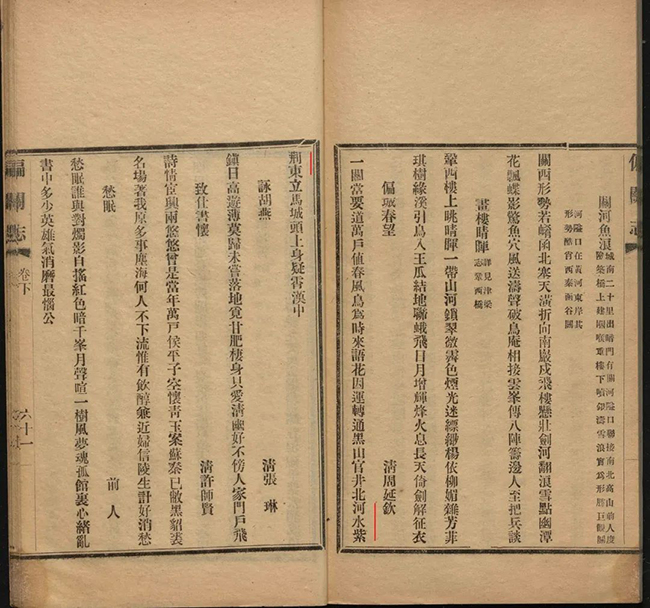 偏關志
關河魚浪
城南二十里出暗門有關河隘口聯接南北高山前人度
險築橋上建關樓重樓下噴銀濤雪浪實爲形勝巨觀關
河隘口在黃河東岸其
形勢酷肖西秦函谷關
關西形勢若崤函北塞天潢折向南嚴戍飛樓懸壯劍河翻浪雪點幽潭
花飄蝶影驚魚穴風送濤聲破鳥庵相接雲峯傳八陣籌邊人至把兵談
書樓晴暉
詳見津梁
志翠西橋
翠西樓上眺晴暉一帶山河鎖翠微霽色煙光迷縹緲楊依柳媚雜芳菲
琪樹綠溪引鳥入王瓜結地聯蛾飛日月增輝烽火息長天倚劍解征衣
偏城春望 清周延欽
一關當要道萬戶値春風鳥爲時來語花因運轉通黑山官井北河水紫
荊東立馬城頭上身疑霄漢中
詠胡燕 清張琳
鎭日高遊薄莫歸未嘗落地覓甘肥棲身只愛淸幽好不傍人家門戶飛
致仕書懷 清許師賢
詩情宦興兩悠悠曾是當年萬戶侯平子空懷靑玉案蘇秦已敝黑貂裘
名場著我原多事塵海何人不下流惟有飲醇兼近婦信陵生計好消愁
愁眠 前人
愁眠誰與對燭影自搖紅色暗千峯月聲喧一樹風夢魂孤館裏心緒亂
書中多少英雄氣消磨最惱公
偏關志 卷下 六十一